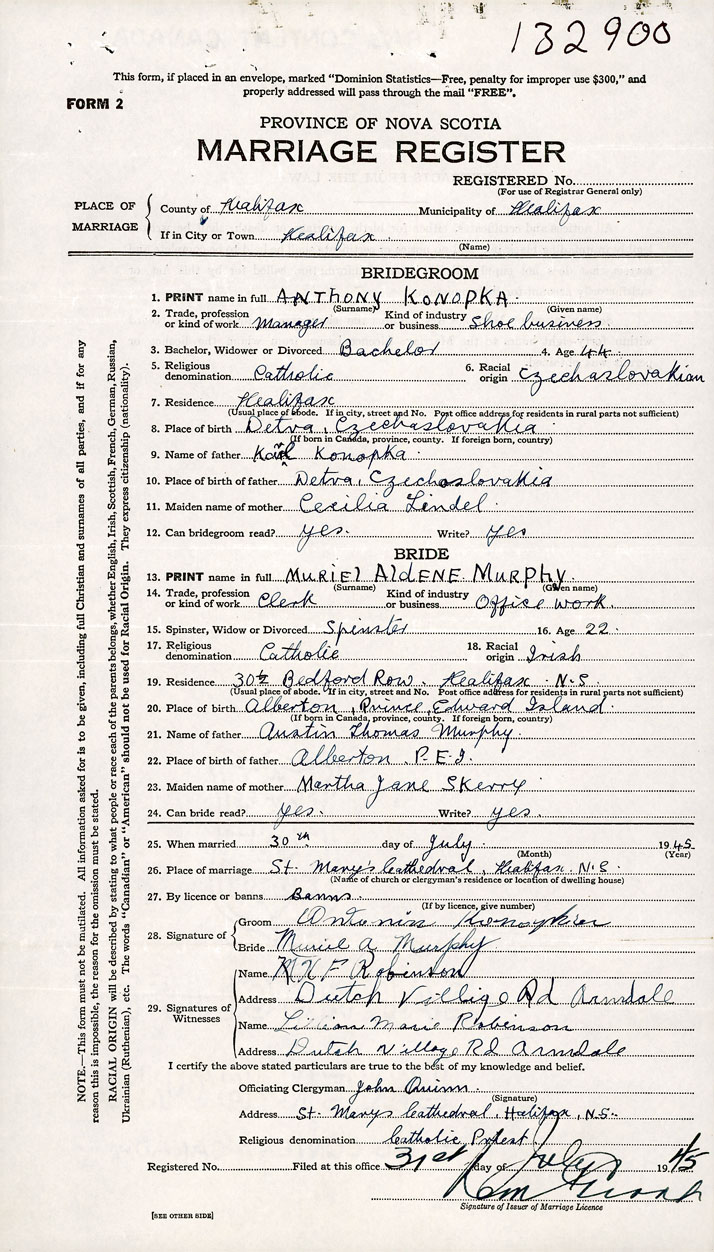 132900
This form, if placed in an envelope, marked "Dominion Statistics—Free, penalty for improper use $300," and
properly addressed will pass through the mail "FREE".
FORM 2
PROVINCE OF NOVA SCOTIA
MARRIAGE REGISTER
REGISTERED No.
(For use of Registrar General only)
PLACE OF MARRIAGE
County of Halifax Municipality of Halifax
If in City or Town Halifax
(Name)
BRIDEGROOM
1. PRINT name in full ANTHONY KONOPKA
(Surname) (Given name)
2. Trade, profession or kind of work Manager Kind of industry or business Shoe business
3. Bachelor, Widower or Divorced Bachelor 4. Age 44
5. Religious denomination Catholic 6. Racial origin Czechaslovakian
7. Residence Halifax
(Usual place of abode. If in city, street and No. Post office address for residents in rural parts not sufficient)
8. Place of birth Detva, Czechaslovakia
(If born in Canada, province, county. If foreign born, country)
9. Name of father Karl Konopka
10. Place of birth of father Detva, Czechoslovakia
11. Maiden name of mother Cecilia Lindel
12. Can bridegroom read? yes. Write? yes
BRIDE
13. PRINT name in full MURIEL ALDENE MURPHY
(Surname) (Given name)
14. Trade, profession or kind of work Clerk Kind of industry or business Office work.
15. Spinster, Widow or Divorced Spinster 16. Age 22
17. Religious denomination Catholic 18. Racial origin Irish
19. Residence Bedford Row. Halifax N.S.
(Usual place of abode. If in city, street and No. Post office address for residents in rural parts not sufficient)
20. Place of birth Alberton, Prince Edward Island
(If born in Canada, province, county. If foreign born, country)
21. Name of father Austin Thomas Murphy.
22. Place of birth of father Alberton P.E.I.
23. Maiden name of mother Martha Jane Skerry
24. Can bride read? yes. Write? yes.
25. When married 30th day of July 1945
(Month) (Year)
26. Place of marriage St. Mary's Cathedral, Halifax. N.S.
(Name of church or clergyman's residence or location of dwelling house)
27. By licence or banns Banns.
(If by licence, give number)
28. Signature of
Groom Antonin
Bride Muriel A Murphy
29. Signatures of Witnesses
Name Robinson
Address Dutch Village Rd Armdale
Name Lillian Marie Robinson
Address Dutch Village Rd Armdale
I certify the above stated particulars are true to the best of my knowledge and belief.
Officiating Clergyman John Quinn.
(Signature)
Address St. Marys Cathedral, Halifax, N.S.
Religious denomination Catholic Priest.
Registered No. Filed at this office 31st day of July 1945
Signature of Issuer of Marriage Licence
[SEE OTHER SIDE]
NOTE.—This form must not be mutilated. All information asked for is to be given, including full Christian and surnames of all parties, and if for any
reason this is impossible, the reason for the omission must be stated.
RACIAL ORIGIN will be described by stating to what people or race each of the parents belongs, whether English, Irish, Scottish, French, German, Russian,
Ukrainian (Ruthenian), etc. The words "Canadian" or "American" should not be used for Racial Origin. They express citizenship (nationality).